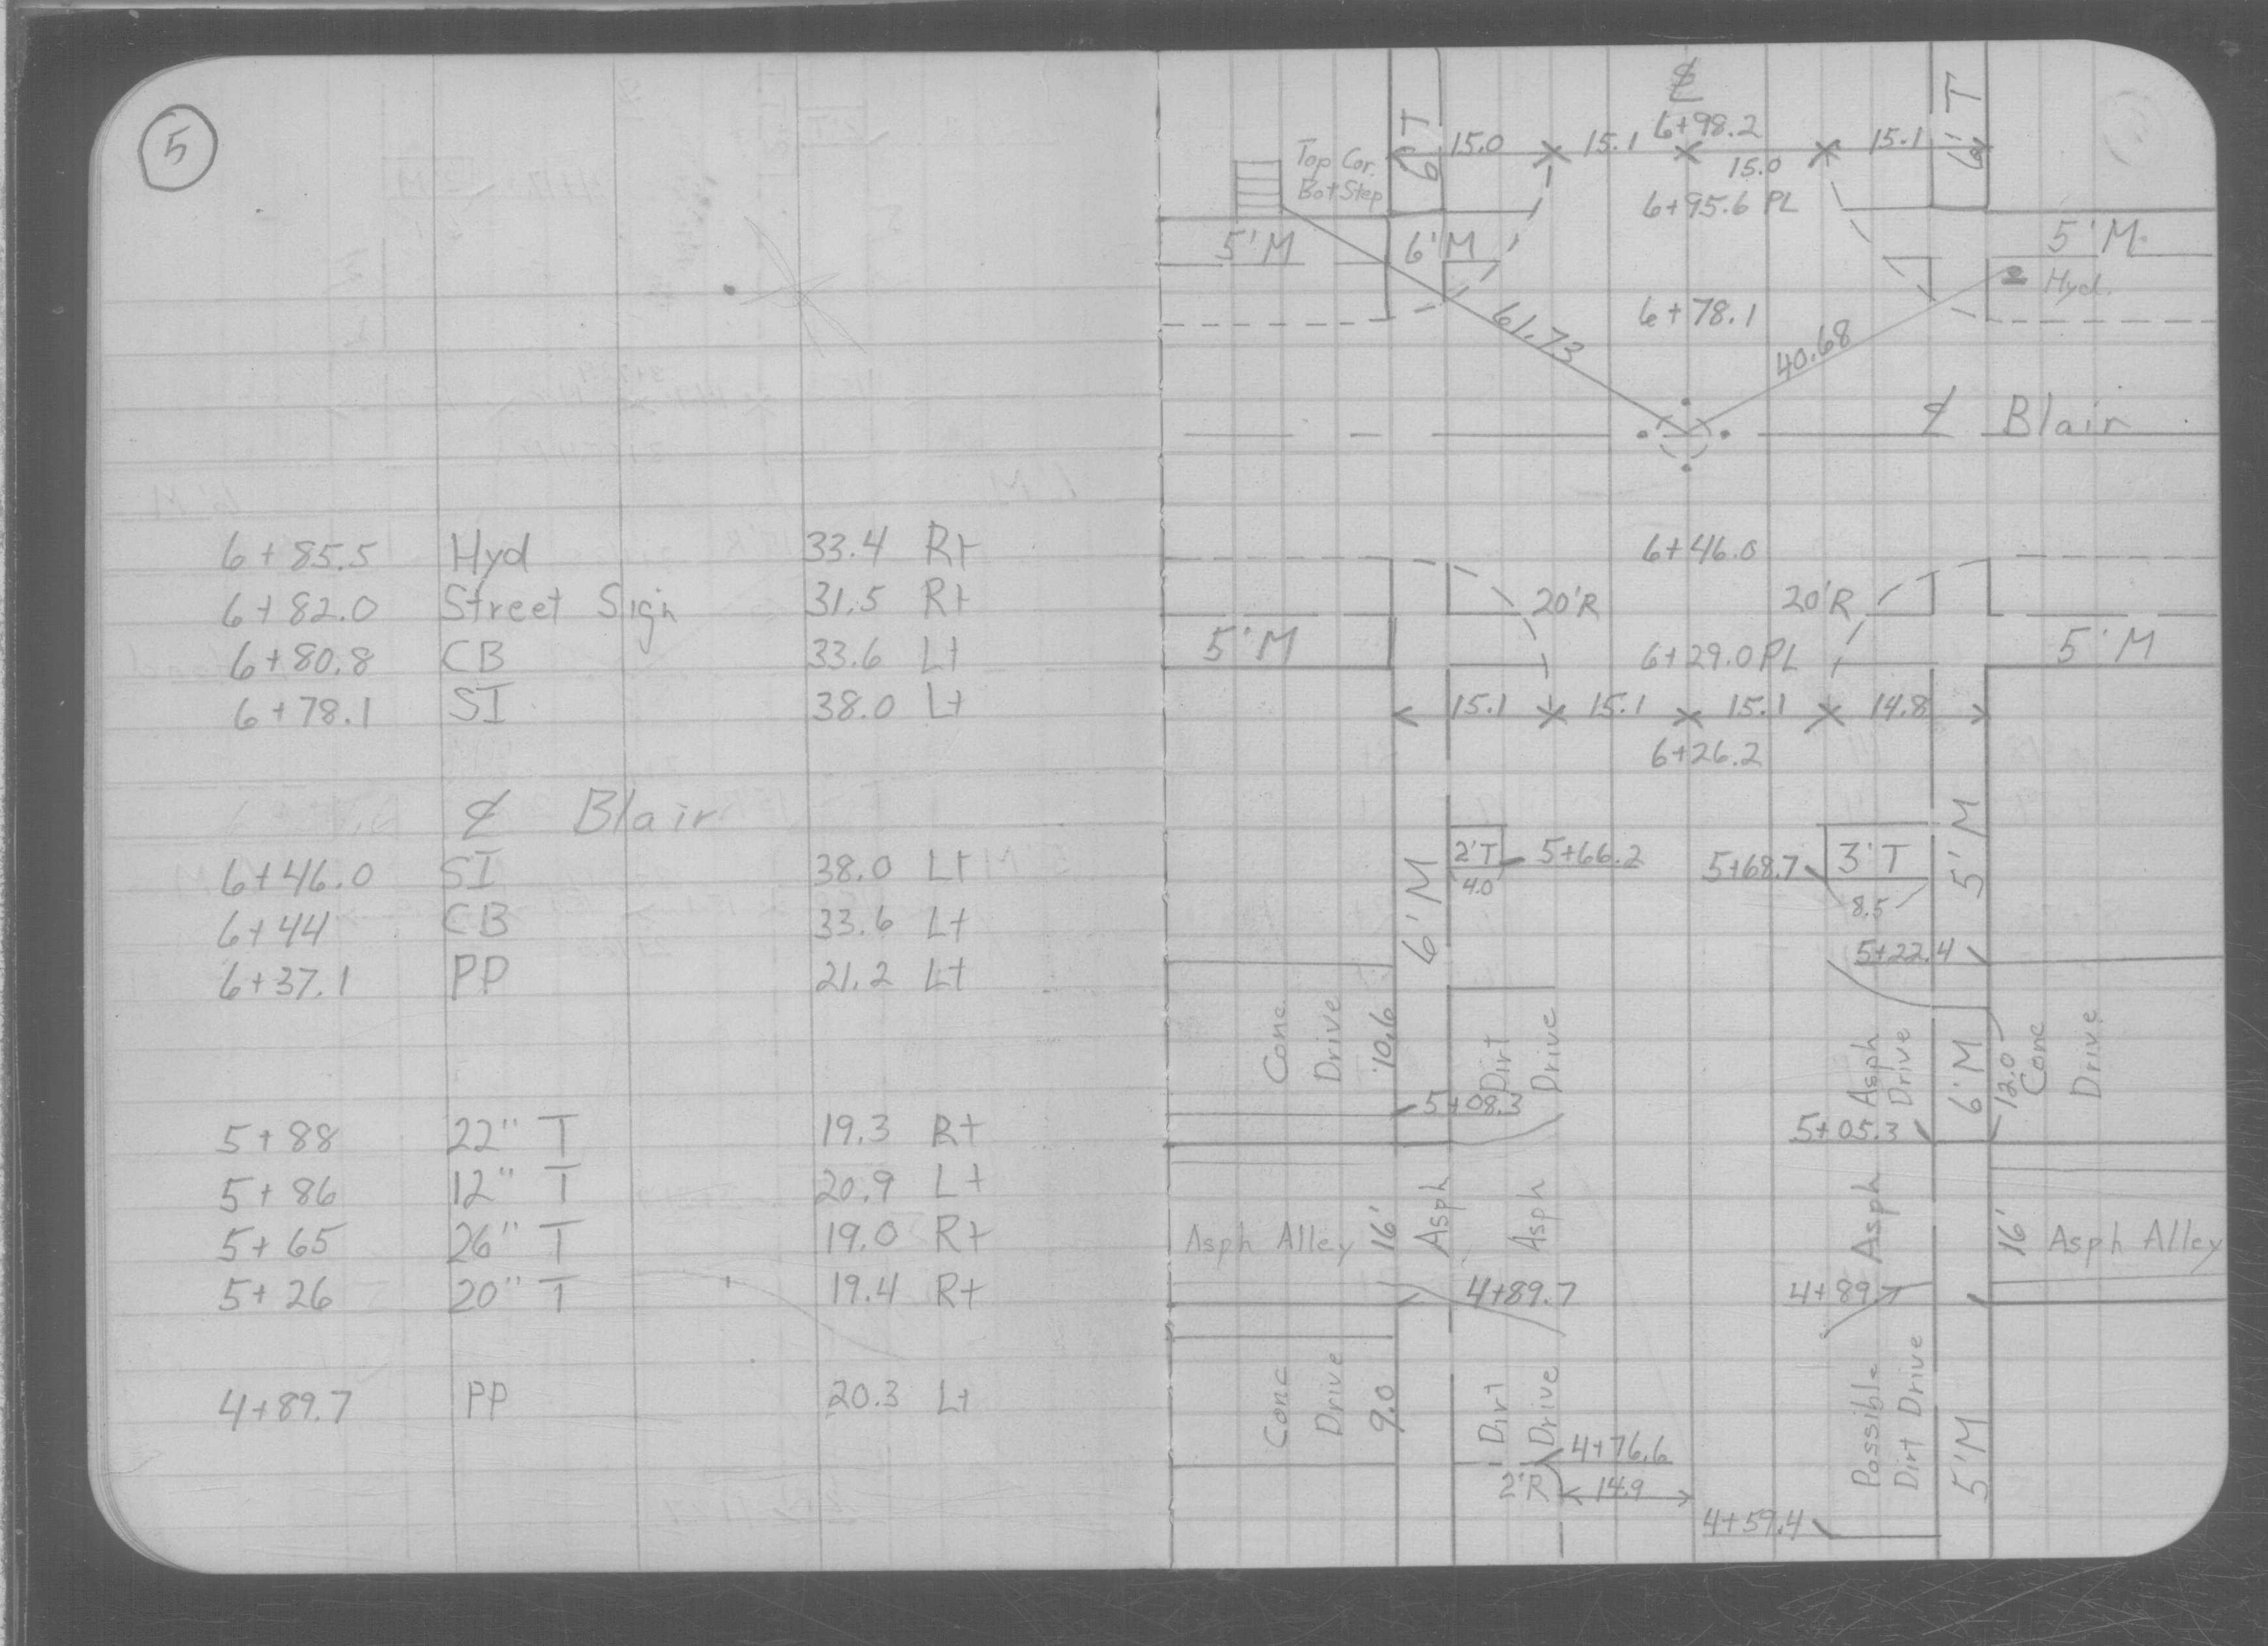 5
6+85.5 Hyd 33.4 Rt
6+82.0 Street Sign 31.5 Rt
6+80.8 CB 33.6 Lt
6+78.1 SI 38.0 Lt
℄ Blair
6+46.0 SI 38.0 Lt
6+44 CB 33.6 Lt
6+37.1 PP 21.2 Lt
5+88 22" T 19.3 Rt
5+86 12" T 20.9 Lt
5+65 26" T 19.0 Rt
5+26 20" T 19.4 Rt
4+89.7 PP 20.3 Lt
℄
6'T 15.0 15.1 6+98.2 15.0 15.1 6'T
Top Cor.
Bot Step
6+95.6 PL
5'M 6'M 5'M
Hyd.
61.73 6+78.1 40.68
℄ Blair
6+46.0
20'R 20'R
5'M 6+29.0 PL 5'M
15.1 15.1 15.1 14.8
6+26.2
6'M 2'T 5+66.2 5+68.7 3'T 5'M
4.0 8.5
5+22.4
Conc Drive 10.6 Dirt Drive Asph Drive 6'M 12.0 Conc Drive
5+08.3 5+05.3
Asph Alley 16' Asph Asph Asph 16' Asph Alley
4+89.7 4+89.7
Conc Drive 9.0 Dirt Drive Possible Dirt Drive 5'M
4+76.6
2'R 14.9
4+59.4